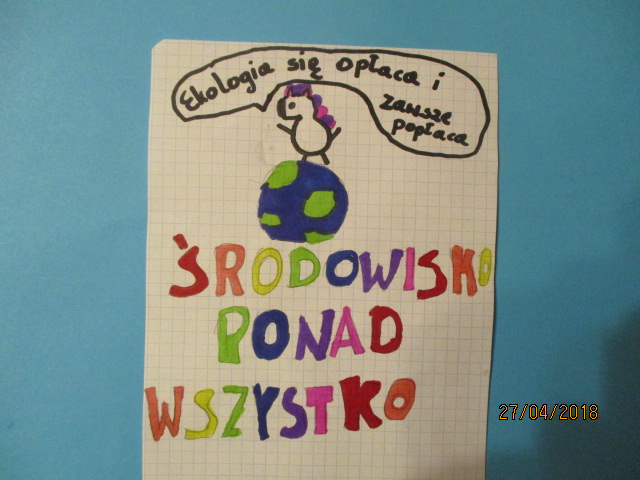 Ekologia się opłaca i
zawsze
popłaca
ŚRODOWISKO
PONAD
WSZYSTKO
27/04/2018